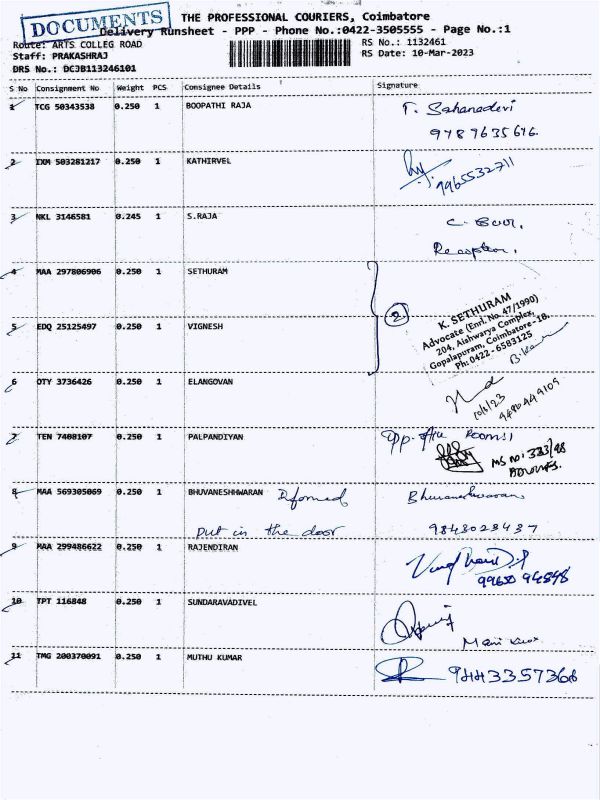 DOCUMENTS
THE PROFESSIONAL COURIERS, Coimbatore
Delivery Runsheet - PPP - Phone No.:0422-3505555 - Page No.:1
Route: ARTS COLLEG ROAD
RS No.: 1132461
Staff: PRAKASHRAJ
RS Date: 10-Mar-2023
DRS No.: DCJB113246101
S No Consignment No Weight PCS Consignee Details Signature
1 TCG 50343538 0.250 1 BOOPATHI RAJA T. Sahanadevi
9789635646
2 IXM 503281217 0.250 1 KATHIRVEL
9965532711
3 NKL 3146581 0.245 1 S.RAJA
Reception.
4 MAA 297806906 0.250 1 SETHURAM
2
K. SETHURAM
Advocate (Enrl. No. 47/1990)
204, Aishwarya Complex,
Gopalapuram, Coimbatore-18.
Ph: 0422-6583125
5 EDQ 25125497 0.250 1 VIGNESH
6 OTY 3736426 0.250 1 ELANGOVAN
7 TEN 7408107 0.250 1 PALPANDIYAN
8 MAA 569305069 0.250 1 BHUVANESHHWARAN Bhuvaneshwaran
put in the door 9843023437
9 MAA 299486622 0.250 1 RAJENDIRAN
10 TPT 116848 0.250 1 SUNDARAVADIVEL
11 TMG 200370091 0.250 1 MUTHU KUMAR 9443357366